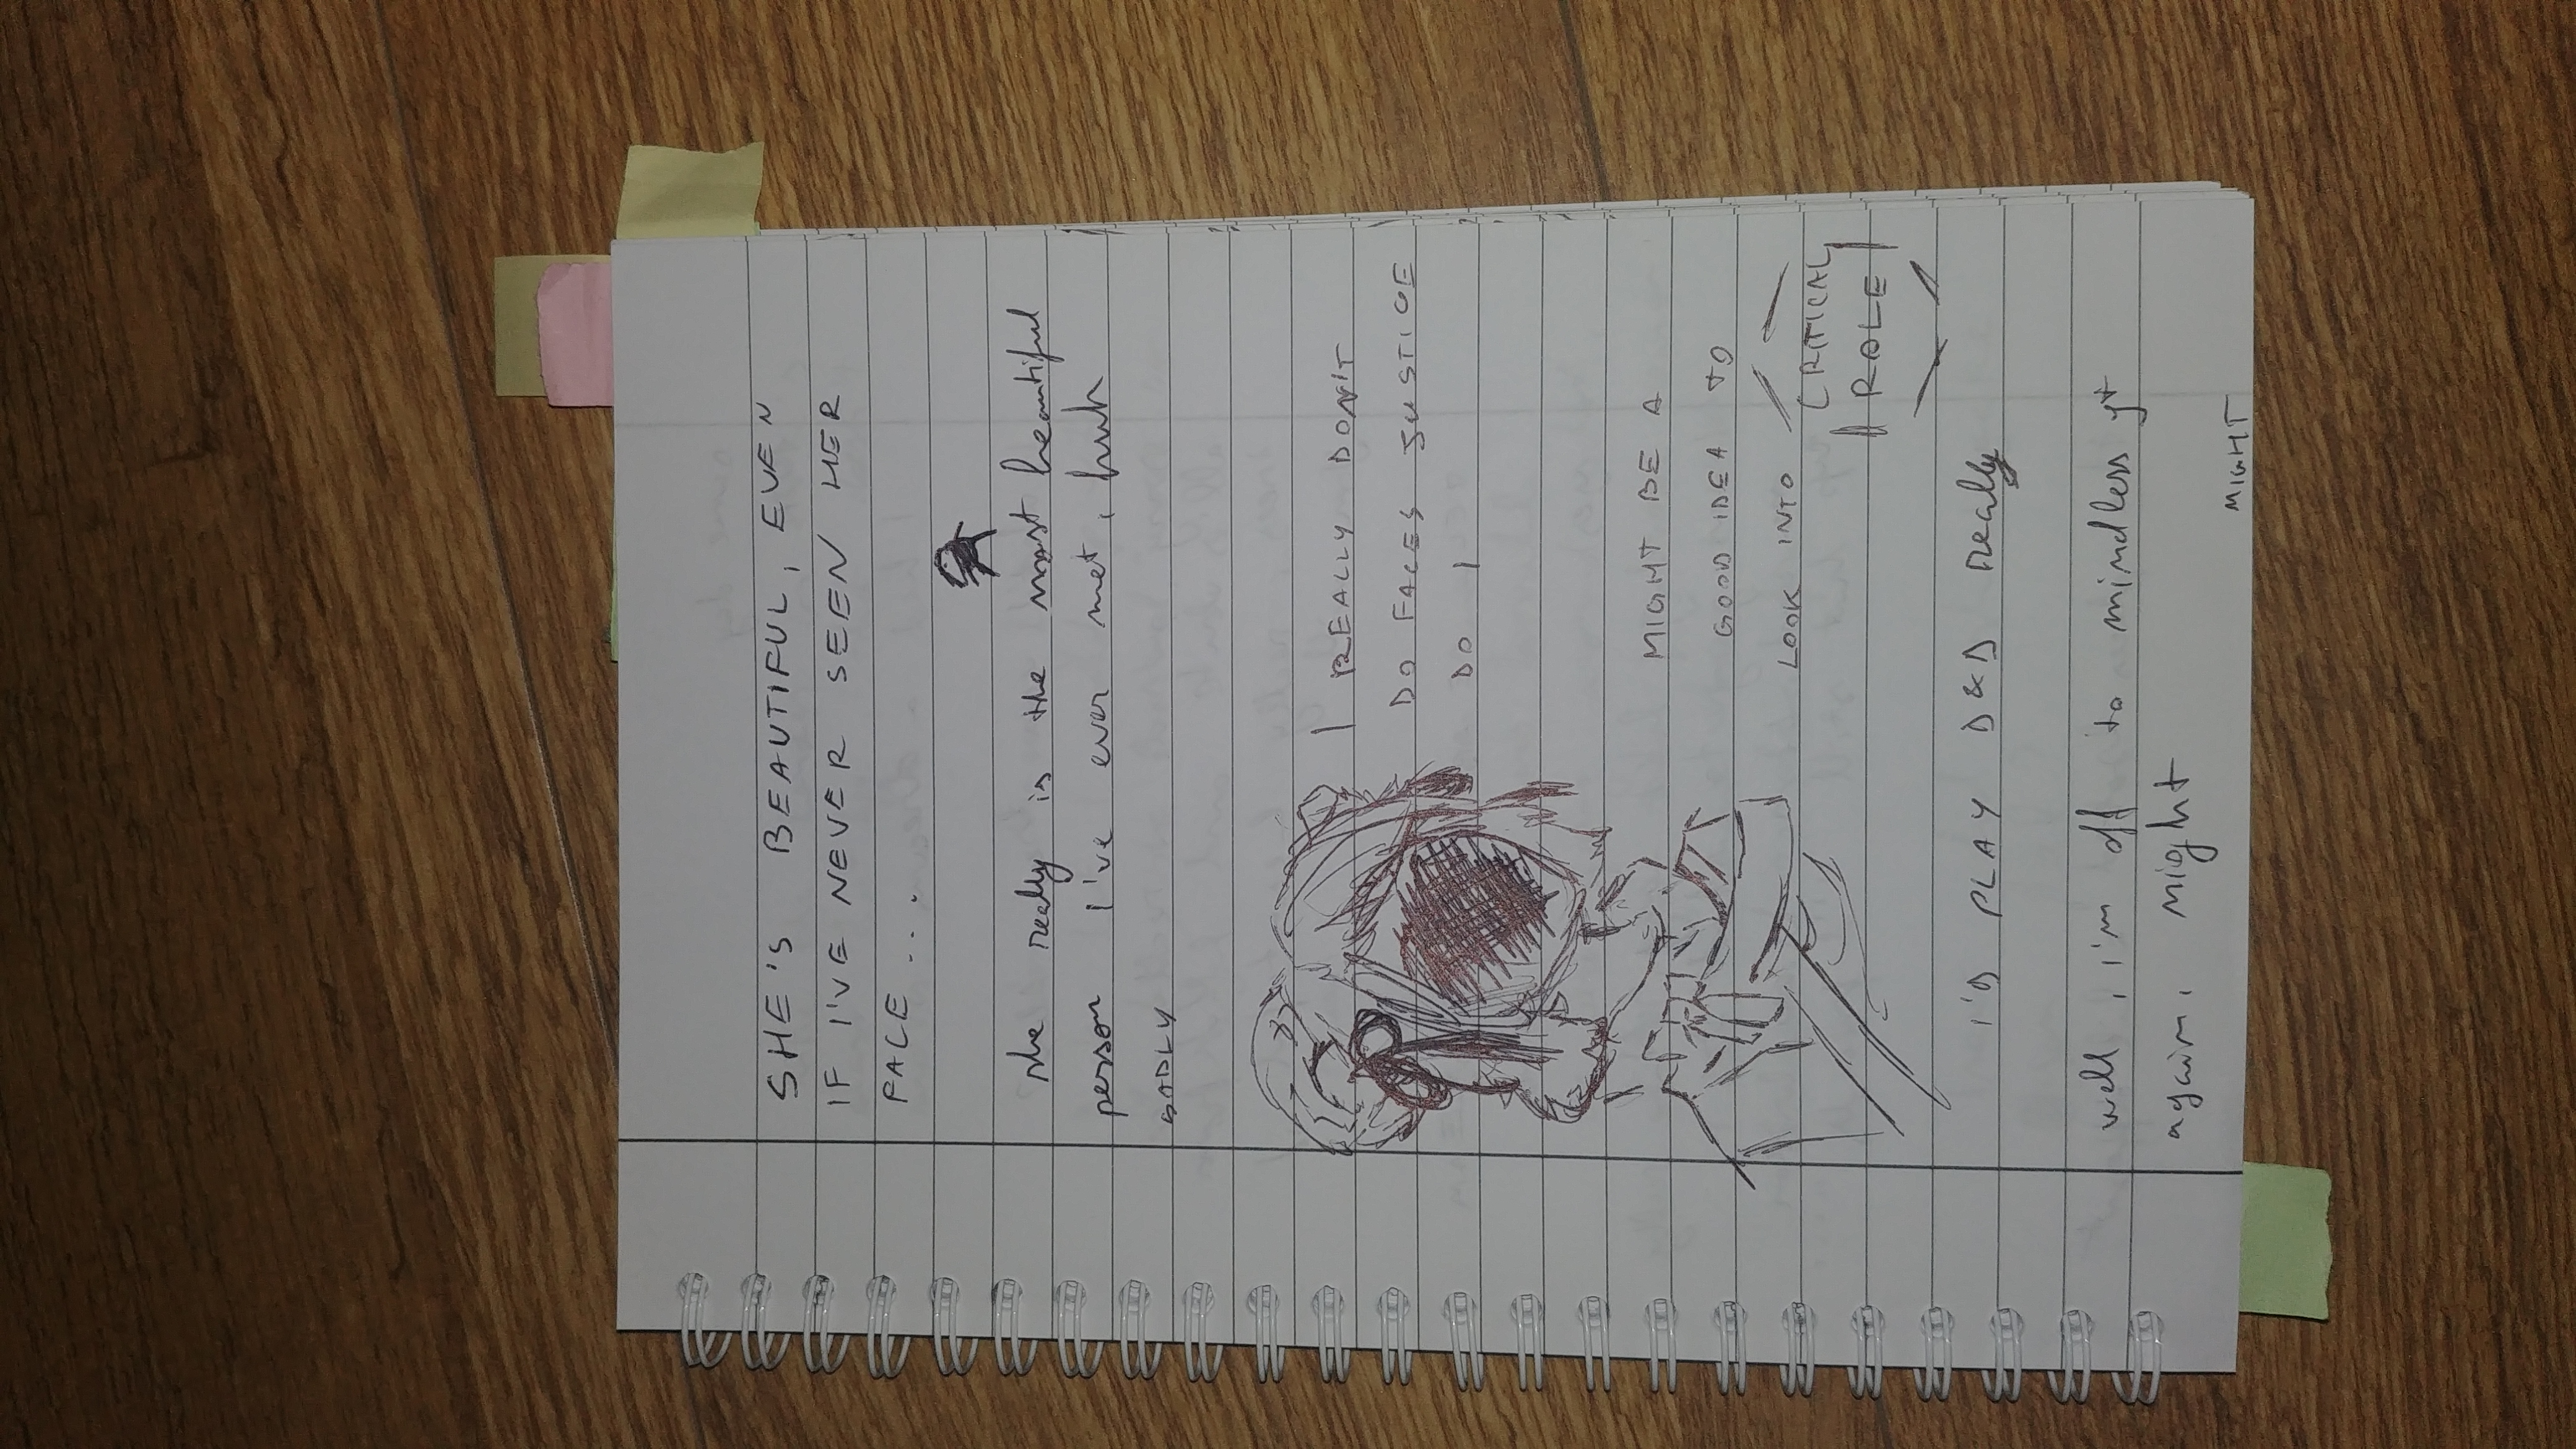 SHE'S BEAUTIFUL, EVEN
IF I'VE NEVER SEEN HER
FACE ...
she really is the most beautiful
person I've ever met, huh
SADLY
I REALLY DON'T
DO FACES JUSTICE
DO I
MIGHT BE A
GOOD IDEA TO
LOOK INTO
CRITICAL
ROLE
I'D PLAY D&D really
well, i'm off to mindless yt
again, night
MIGHT